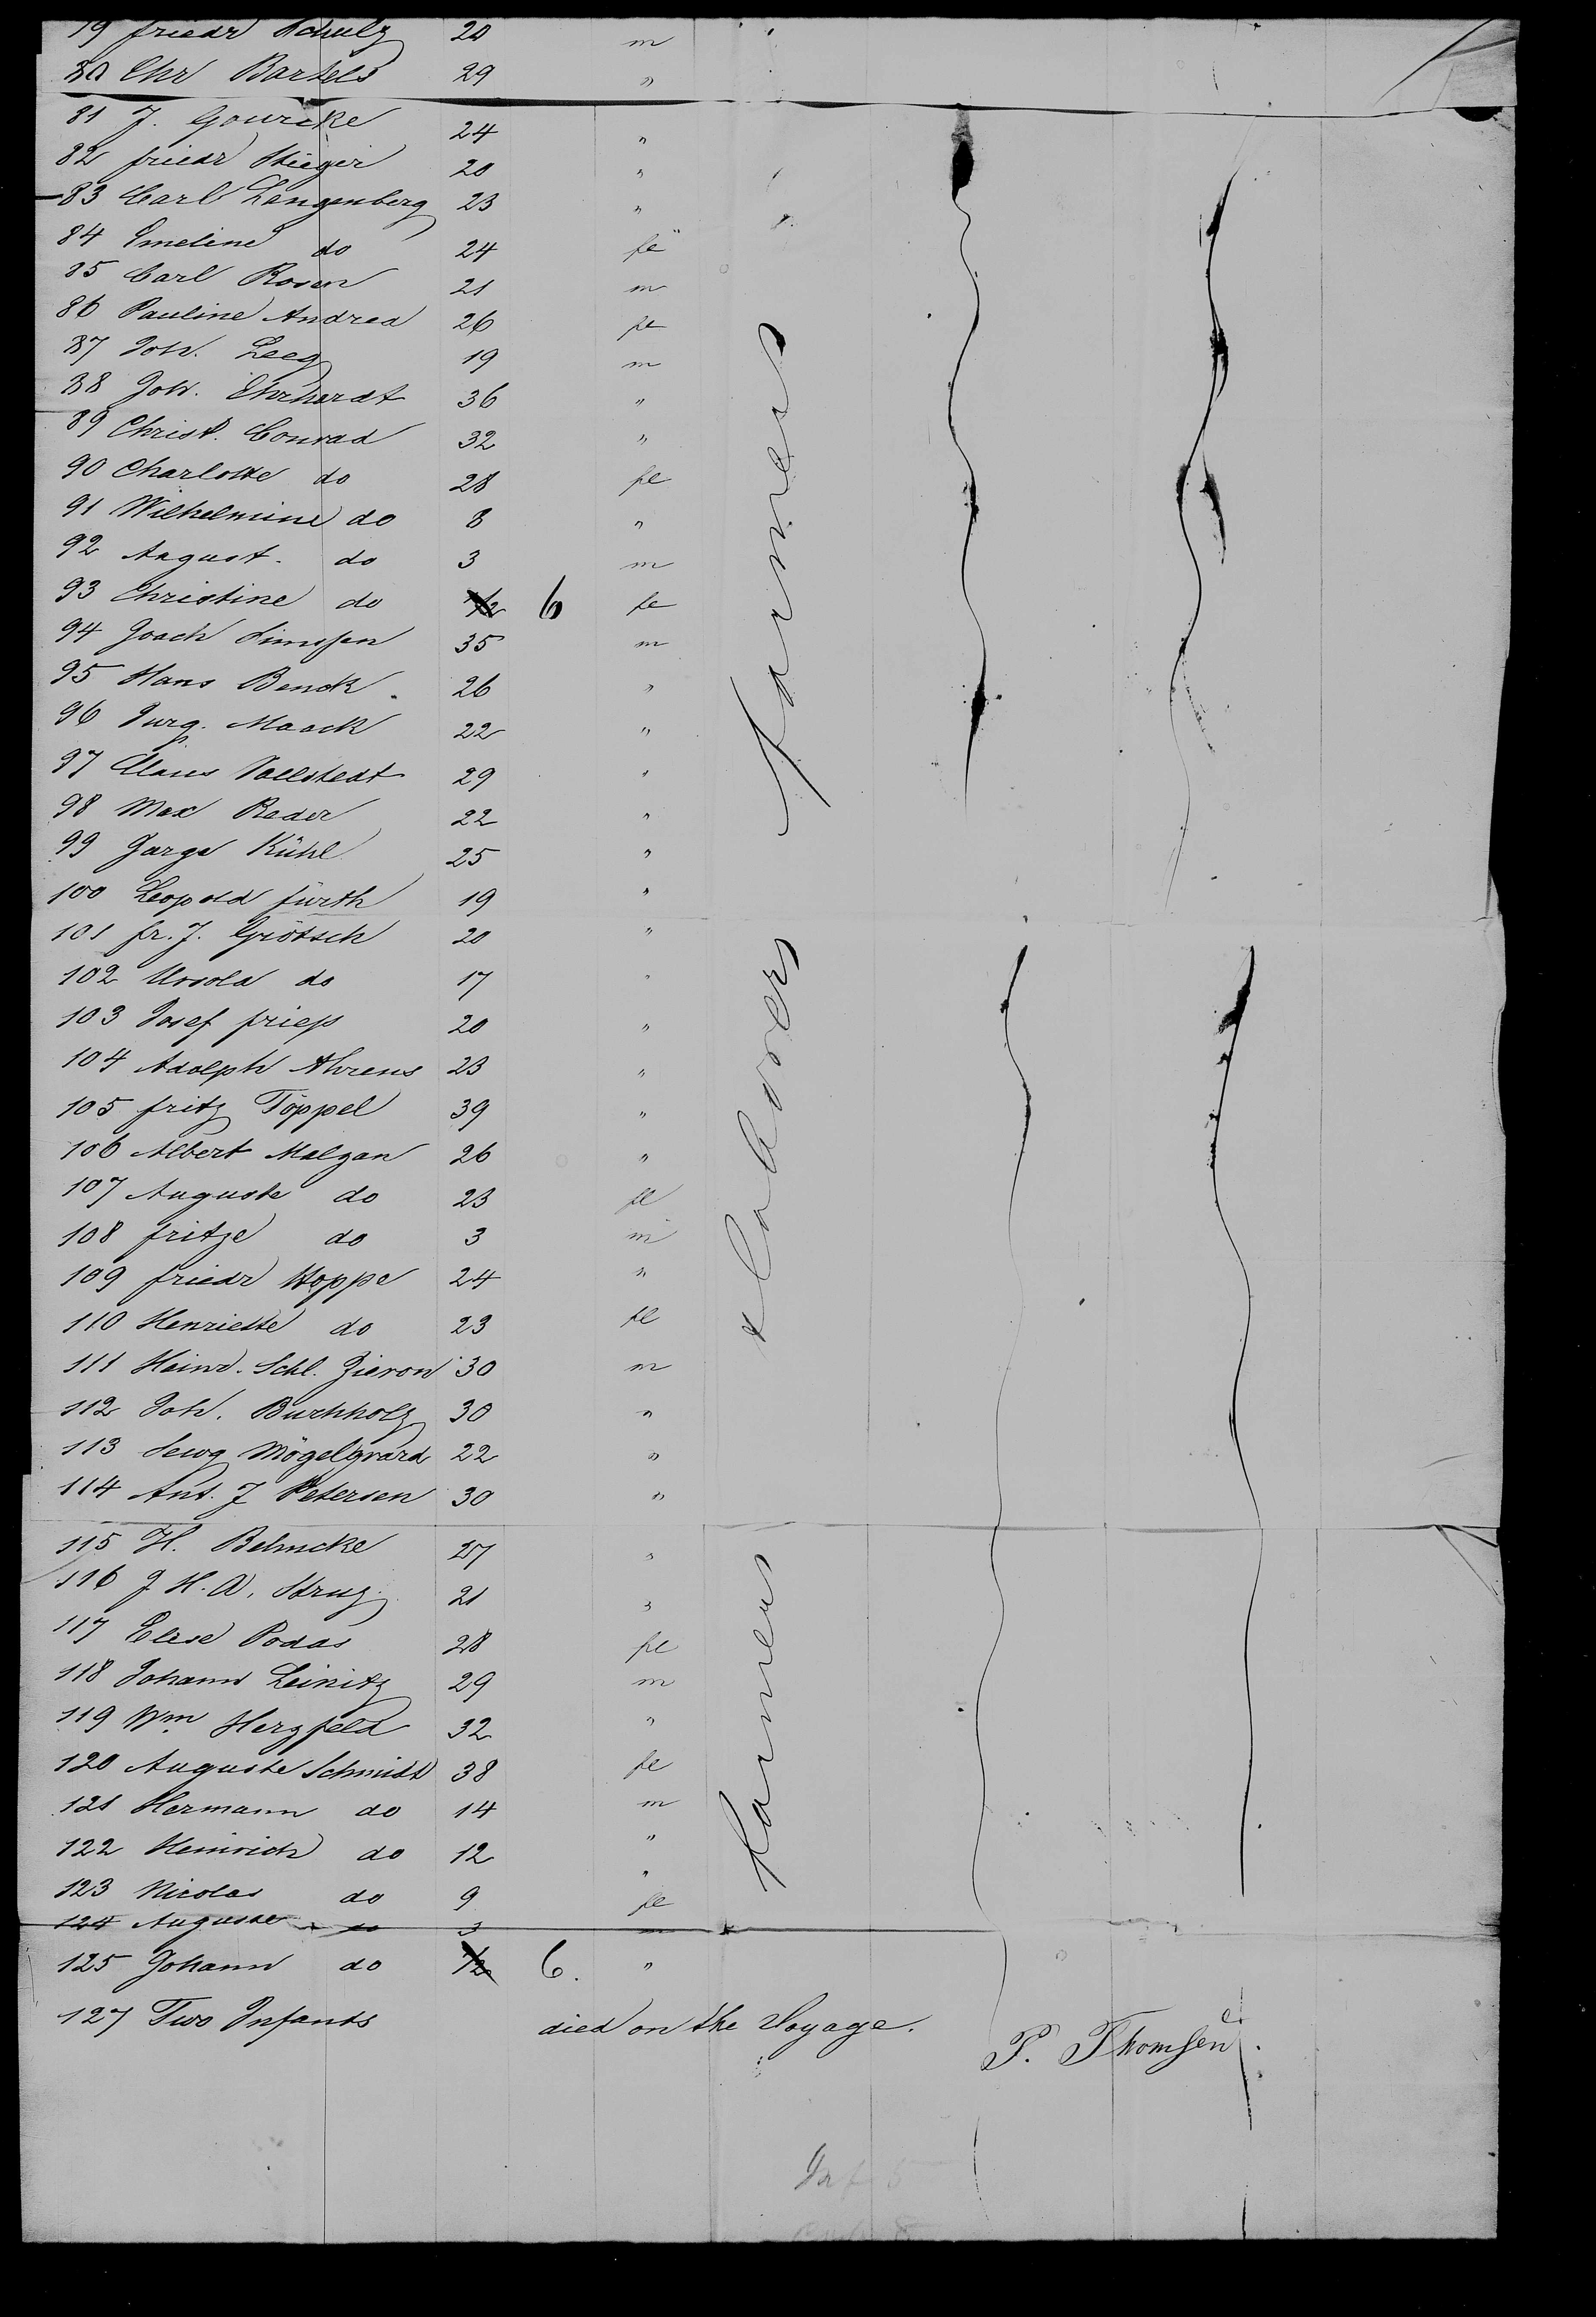 79 friedr Schulz 20 m
80 Chr Bartels 29 "
81 J. Gouricke 24 "
82 friedr Stieger 20 "
83 Carl Langenberg 23 "
84 Emeline do 24 fe
85 Carl Rosen 21 m
86 Pauline Andrea 26 fe
87 Joh. Leeg 19 m
88 Joh. Ehrhardt 36 "
89 Christ. Conrad 32 "
90 Charlotte do 28 fe
91 Wilhelmine do 8 "
92 August. do 3 m
93 Christine do 1/2 6 fe
94 Joach Simssen 35 m
95 Hans Benck 26 "
96 Jurg. Maack 22 "
97 Claus Vollstedt 29 "
98 Max Rader 22 "
99 Jurge Kühl 25 "
100 Leopold fürth 19 "
101 fr. J. Grötsch 20 "
102 Ursola do 17 "
103 Josef friess 20 "
104 Adolph Ahrens 23 "
105 fritz Töppel 39 "
106 Albert Malzan 26 "
107 Auguste do 23 fe
108 fritze do 3 m
109 friedr Hoppe 24 "
110 Henriette do 23 fe
111 Heinr. Schl. Zieron 30 m
112 Joh. Buchholz 30 "
113 Mögelgvard 22 "
114 Ant. J Petersen 30 "
115 H. Behncke 27 "
116 J H. A. Strug 21 "
117 Elise Podas 28 fe
118 Johann Leinitz 29 m
119 Wm Herzfeld 32 "
120 Auguste Schmidt 38 fe
121 Hermann do 14 m
122 Heinrich do 12 "
123 Nicolas do 9 fe
124 Auguste do 3 m
125 Johann do 1/2 6. "
127 Two Infants died on the Voyage.
Farmers
& Labovers
Farmers
P. Thomsen
Inf 5